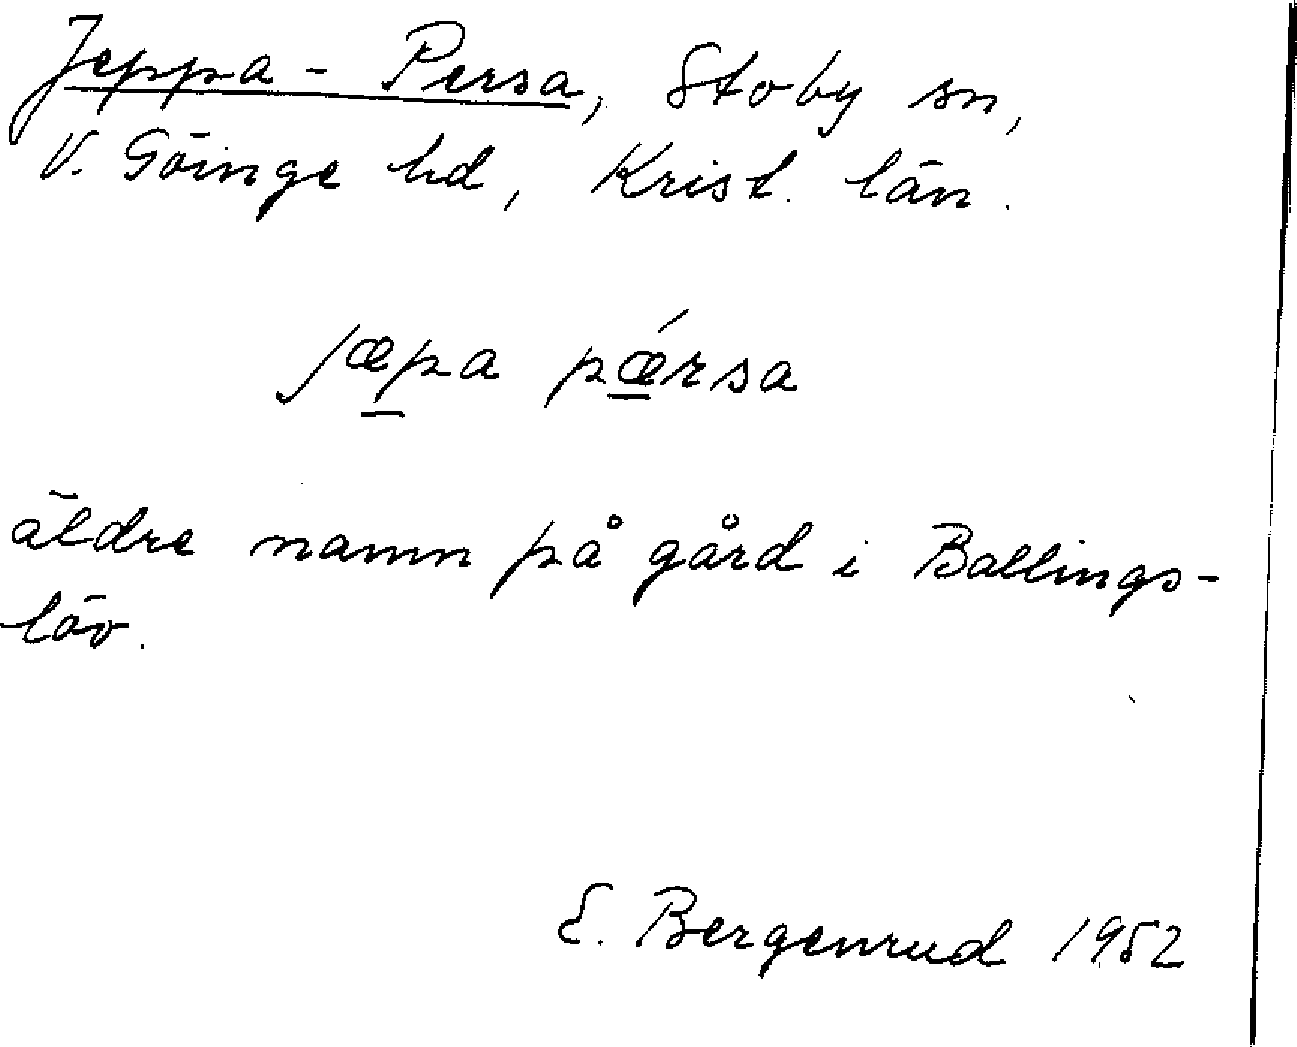 Jeppa-Persa, Stoby sn,
V. Göinge hd, Krist. län.
jæpa pǽrsa
äldre namn på gård i Ballings-
löv.
E. Bergenrud 1952